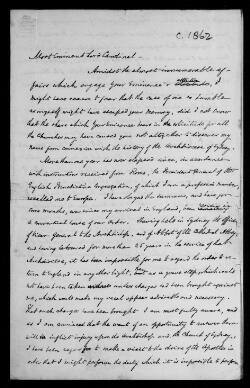 c. 1862
Most Eminent Lord Cardinal -
Amidst the almost innumerable af-
fairs which engage your Eminence's attention, I
might have reason to fear that the case of one so humble
as myself might have escaped your memory, did I not know
that the share which your Eminence has in the solicitude for all
the Churches may have caused you not altogether to dissever my
name from connexion with the history of the Archdiocese of Sydney.
More than a year has now elapsed since, in accordance
with instructions received from Rome, the President General of the
English Benedictine Congregation, of which I am a professed member,
recalled me to Europe. I have obeyed the summons, and have, for
two months, now since my arrival in England, been
a conventual house of our Order. Having held in Sydney the office
of Vicar General to the Archbishop, and of Abbot of the Cathedral Abbey,
and having laboured for more than 25 years in the service of the
Archdiocese, it has been impossible for me to regard the order to re-
turn to England in any other light, but as a grave step which could
not have been taken unless under charges had been brought against
me, which would make my recal appear advisable and necessary.
That such charges have been brought I am most fully aware, and
as I am convinced that the want of an opportunity to answer them
will inflict injury upon the Archbishop and the Church of Sydney,
I have been urged to make a visit to the shrine of the Apostles in
order that I might perform the duty which it is impossible to perform